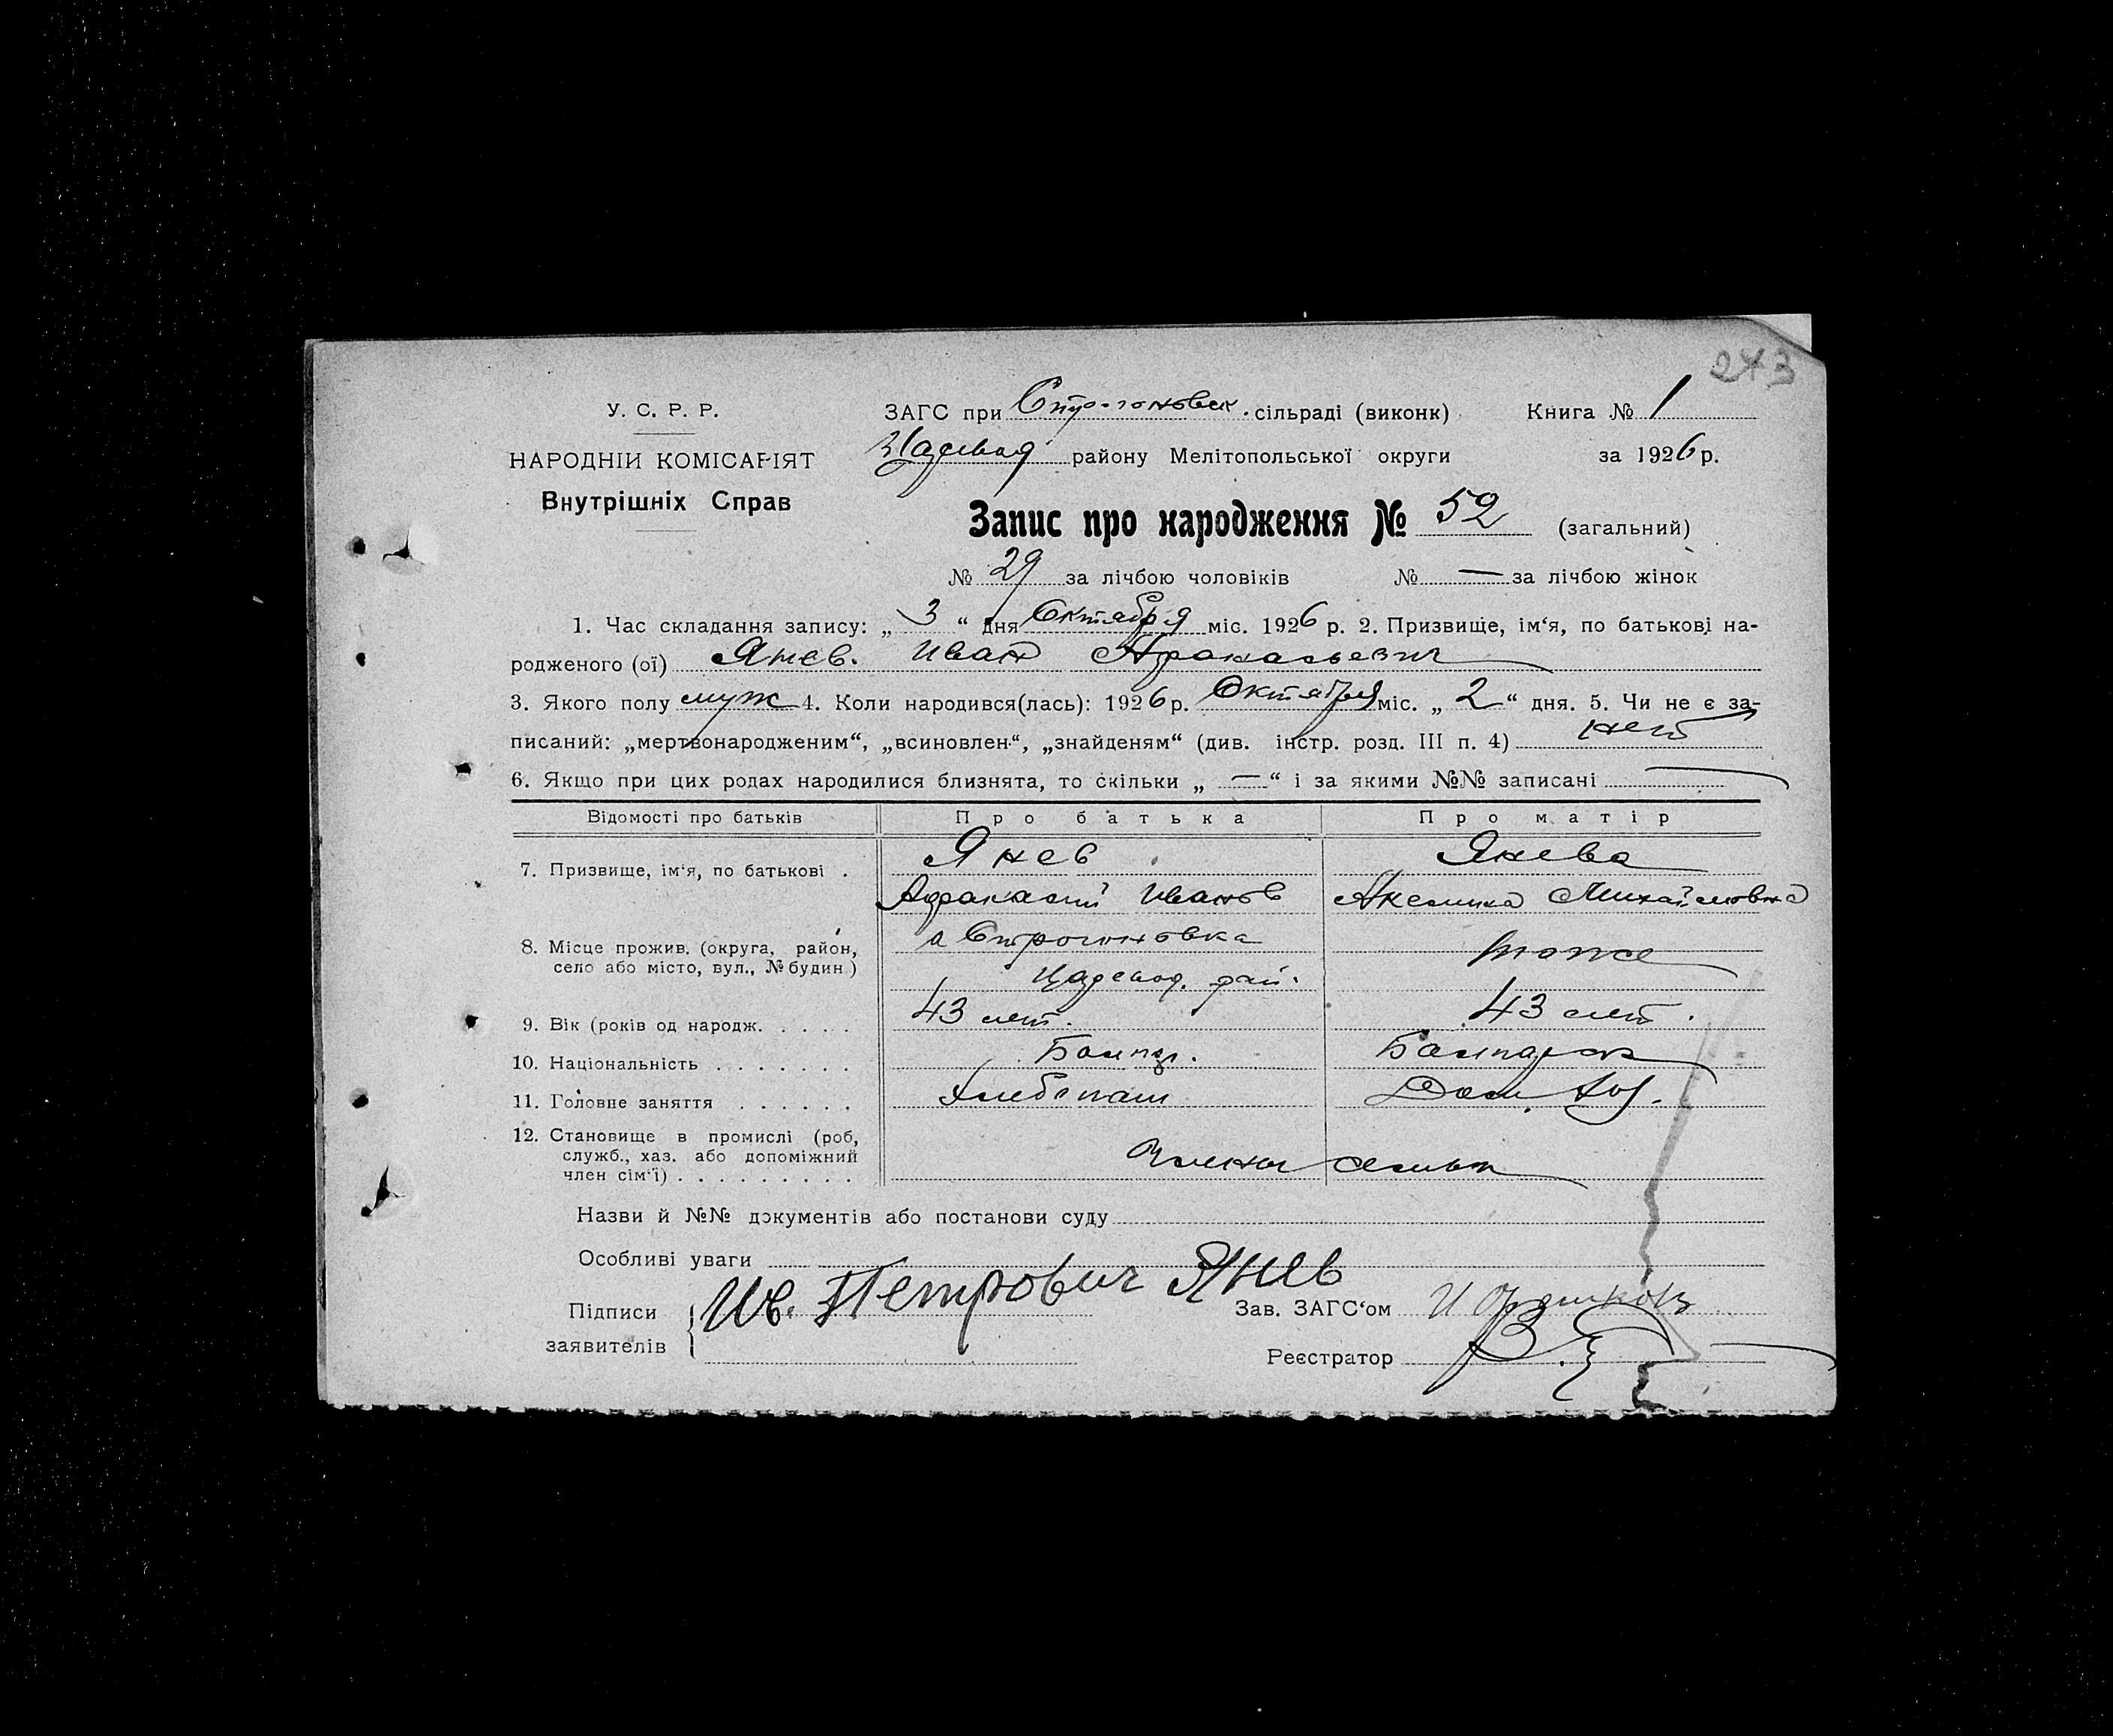 273
У. С. Р. Р.
НАРОДНІЙ КОМІСАРІЯТ
Внутрішніх Справ
ЗАГС при Строгоновск. сільраді (виконк) Книга № 1
району Мелітопольської округи за 1926 р.
Запис про народження № 52 (загальний)
№ 29 за лічбою чоловіків № — за лічбою жінок
1. Час складання запису: „ 3 “ дня Октября міс. 1926 р. 2. Призвище, ім‘я, по батькові на-
родженого (ої) Янев. Иван Афанасьевич
3. Якого полу муж 4. Коли народився(лась): 1926 р. Октября міс. „ 2 “ дня. 5. Чи не є за-
писаний: „мертвонародженим“, „всиновлен“, „знайденям“ (див. інстр. розд. III п. 4) нет
6. Якщо при цих родах народилися близнята, то скільки „ — “ і за якими №№ записані —
Відомості про батьків Про батька Про матір
7. Призвище, ім‘я, по батькові . Янев Янева
Афанасий Иванов Михайловна
8. Місце прожив. (округа, район, Строгоновка тоже
село або місто, вул., № будин.) рай.
9. Вік (років од народж. . . . . 43 лет. 43 лет.
10. Національність . . . . . . . Болгар. Болгарка
11. Головне заняття . . . . . . Хлебопаш Дом. хоз.
12. Становище в промислі (роб,
служб., хаз. або допоміжний
член сім‘ї) . . . . . . . . . Члены семьи
Назви й №№ документів або постанови суду
Особливі уваги
Підписи заявителів { Ив. Петрович Янев
Зав. ЗАГС‘ом
Реєстратор